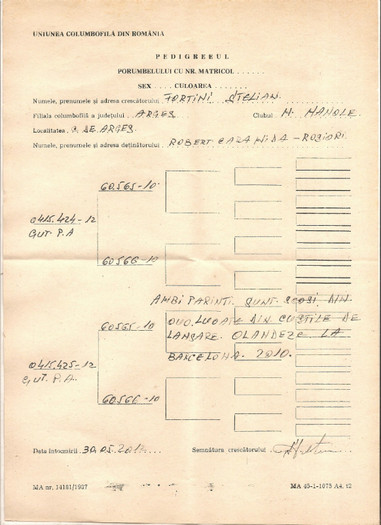 UNIUNEA COLUMBOFILĂ DIN ROMÂNIA
PEDIGREEUL
PORUMBELULUI CU NR. MATRICOL . . . . . . .
SEX . . . . CULOAREA . . . . . . .
Numele, prenumele și adresa crescătorului FORTINI STELIAN
Filiala columbofilă a județului ARGEȘ Clubul M. MANOLE
Localitatea C. DE ARGEȘ
Numele, prenumele și adresa deținătorului ROBERT
60.565-10
0415.424-12
GUT P.A
60566-10
AMBI PARINTI SUNT SCOSI DIN
OUO LUATE DIN CUSTILE DE
LANSARE OLANDEZE LA
BARCELONA 2010.
60565-10
0415.425-12
GUT. P.A.
60566-10
Data întocmirii 30.05.
Semnătura crescătorului
MA nr. 14101/1987
MA 45-1-1073 A4 t2